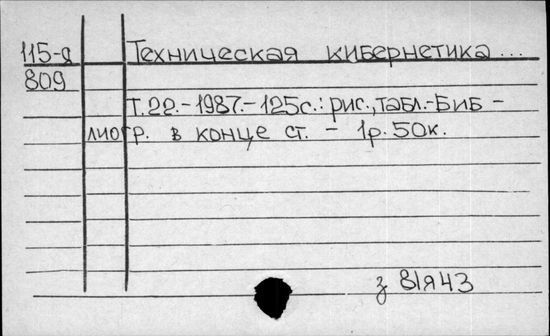 115-д Техническая кибернетика ...
809
Т.22.-1987.-125с.: рис., табл.-Биб-
лиогр. в конце ст. - 1р. 50к.
з 81я43